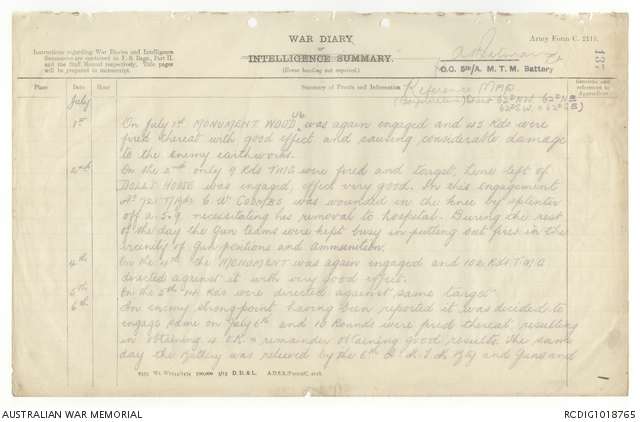 WAR DIARY
or
INTELLIGENCE SUMMARY.
(Erase heading not required).
Army Form C. 2118.
Instructions regarding War Diaries and Intelligence
Summaries are contained in F.S. Regs., Part II.
and the Staff Manual respectively. Title pages
will be prepared in manuscript.
O.C. 5th/A. M. T. M. Battery
13
Place
Date
Hour
Summary of Events and Information
Remarks and
references to
Appendices
Reference MAP
62D NW 62D NE
62D SW 62D SE
July
1st On July 1st MONUMENT WOOD was again engaged and 45 Rds were
fired thereat with good effect and causing considerable damage
to the enemy earthworks.
2nd On the 2nd only 9 Rds TMG were fired and target, Lines left of
DOLLS HOUSE was engaged, effect very good. In this engagement
No 721 C W COOMBS was wounded in the knee by splinter
off a 5.9 necessitating his removal to hospital. During the rest
of the day the Gun teams were kept busy in putting out fires in the
vicinity of Gun positions and ammunition.
4th On the 4th the MONUMENT was again engaged and 102 Rds T M G
directed against it with very good effect.
5th On the 5th 44 Rds were directed against same target.
6th An enemy strong point having been reported it was decided to
engage same on July 6th and 10 Rounds were fired thereat, resulting
in obtaining 4 OK & remainder obtaining good results. The same
day the Battery was relieved by the 6th Bty and Guns and
D. D. & L.
AUSTRALIAN WAR MEMORIAL
RCDIG1018765